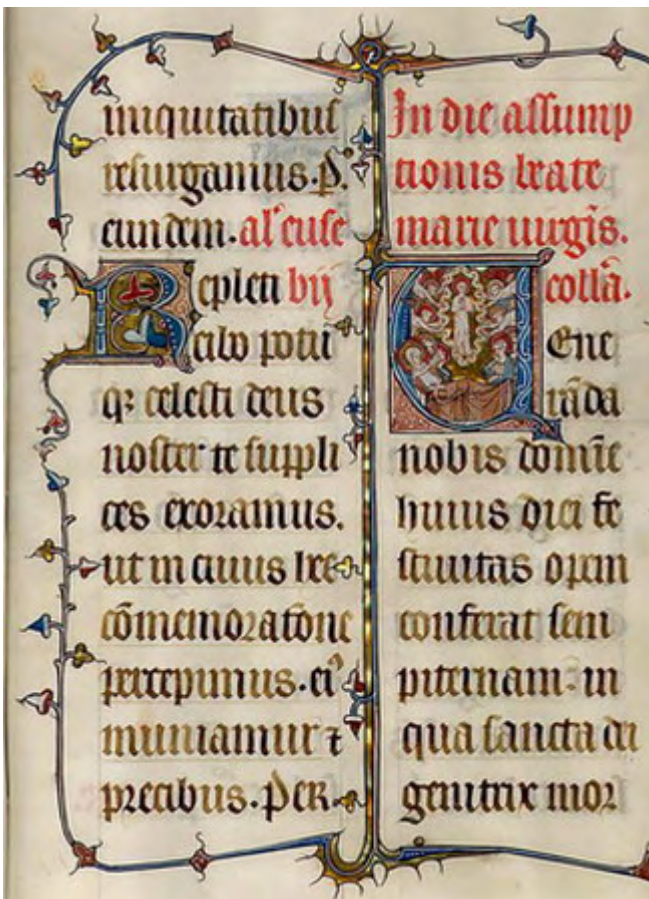 iniquitatibus
resurgamus. P.
eundem. al' euse
Repleti bij
cibo potu
qz celesti deus
noster te suppli
ces exoramus.
ut in cuius hec
cōmemoratione
percepimus. eiꝰ
muniamur ⁊
precibus. Per
In die assump
tionis beate
marie uirgīs.
collā.
Uene
rāda
nobis domīe
huius diei fe
stiuitas opem
conferat sem
piternam. in
qua sancta dei
genitrix mor